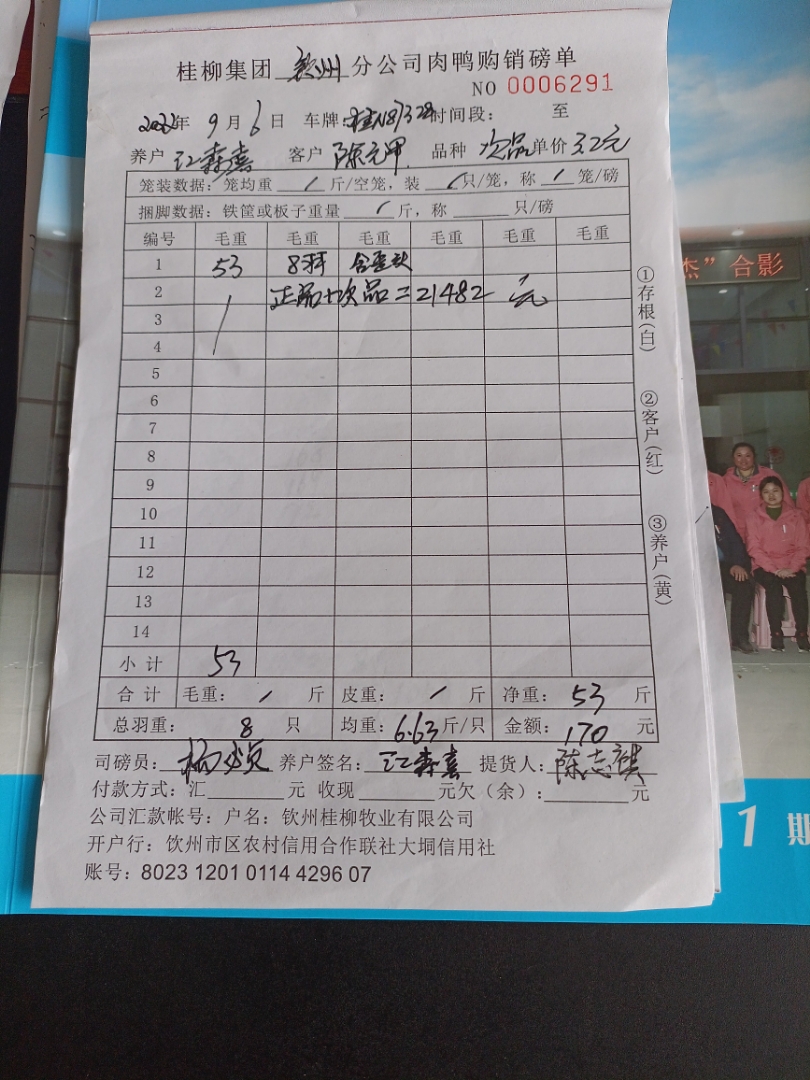 桂柳集团 钦州 分公司肉鸭购销磅单
NO 0006291
2022年 9月6日 车牌: 桂N87328 时间段: 至
养户 江森熹 客户 陈元甲 品种 次品 单价 3.2元
笼装数据: 笼均重 / 斤/空笼, 装 / 只/笼, 称 / 笼/磅
捆脚数据: 铁筐或板子重量 / 斤, 称 只/磅
编号 毛重 毛重 毛重 毛重 毛重 毛重
1 53 8羽
2 正品+次品=21482元
3
4
5
6
7
8
9
10
11
12
13
14
小计 53
合计 毛重: / 斤 皮重: / 斤 净重: 53 斤
总羽重: 8 只 均重: 6.63 斤/只 金额: 170 元
司磅员: 养户签名: 江森熹 提货人: 陈志祺
付款方式: 汇 元 收现 元欠(余): 元
公司汇款帐号: 户名: 钦州桂柳牧业有限公司
开户行: 钦州市区农村信用合作联社大垌信用社
账号: 8023 1201 0114 4296 07
①存根(白)
②客户(红)
③养户(黄)
杰”合影
1 期